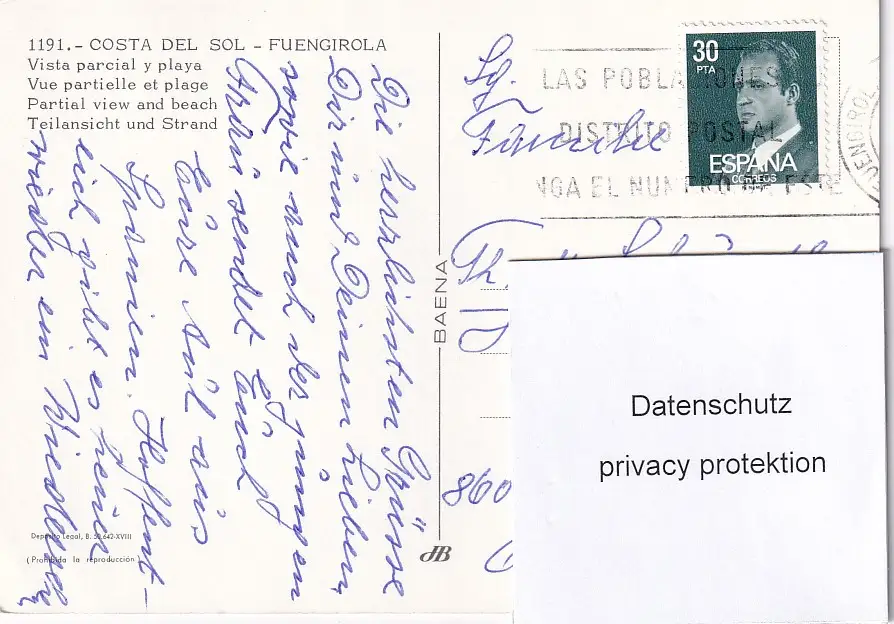 1191.- COSTA DEL SOL - FUENGIROLA
Vista parcial y playa
Vue partielle et plage
Partial view and beach
Teilansicht und Strand
Die herzlichsten Grüsse
Dir und Deinen Lieben,
sowie auch der ganzen
sendet Euch
Eure aus
Spanien. Hoffent-
lich gibt es heuer
wieder ein Wiedersehen
Deposito Legal, B. 52.642-XVIII
(Prohibida la reproducción)
BAENA
30
PTA
ESPAÑA
CORREOS
LAS POBLACIONES
DISTRITO POSTAL
NGA EL NUMERO DE ESTE
FUENGIROL
Familie
860
Datenschutz
privacy protektion